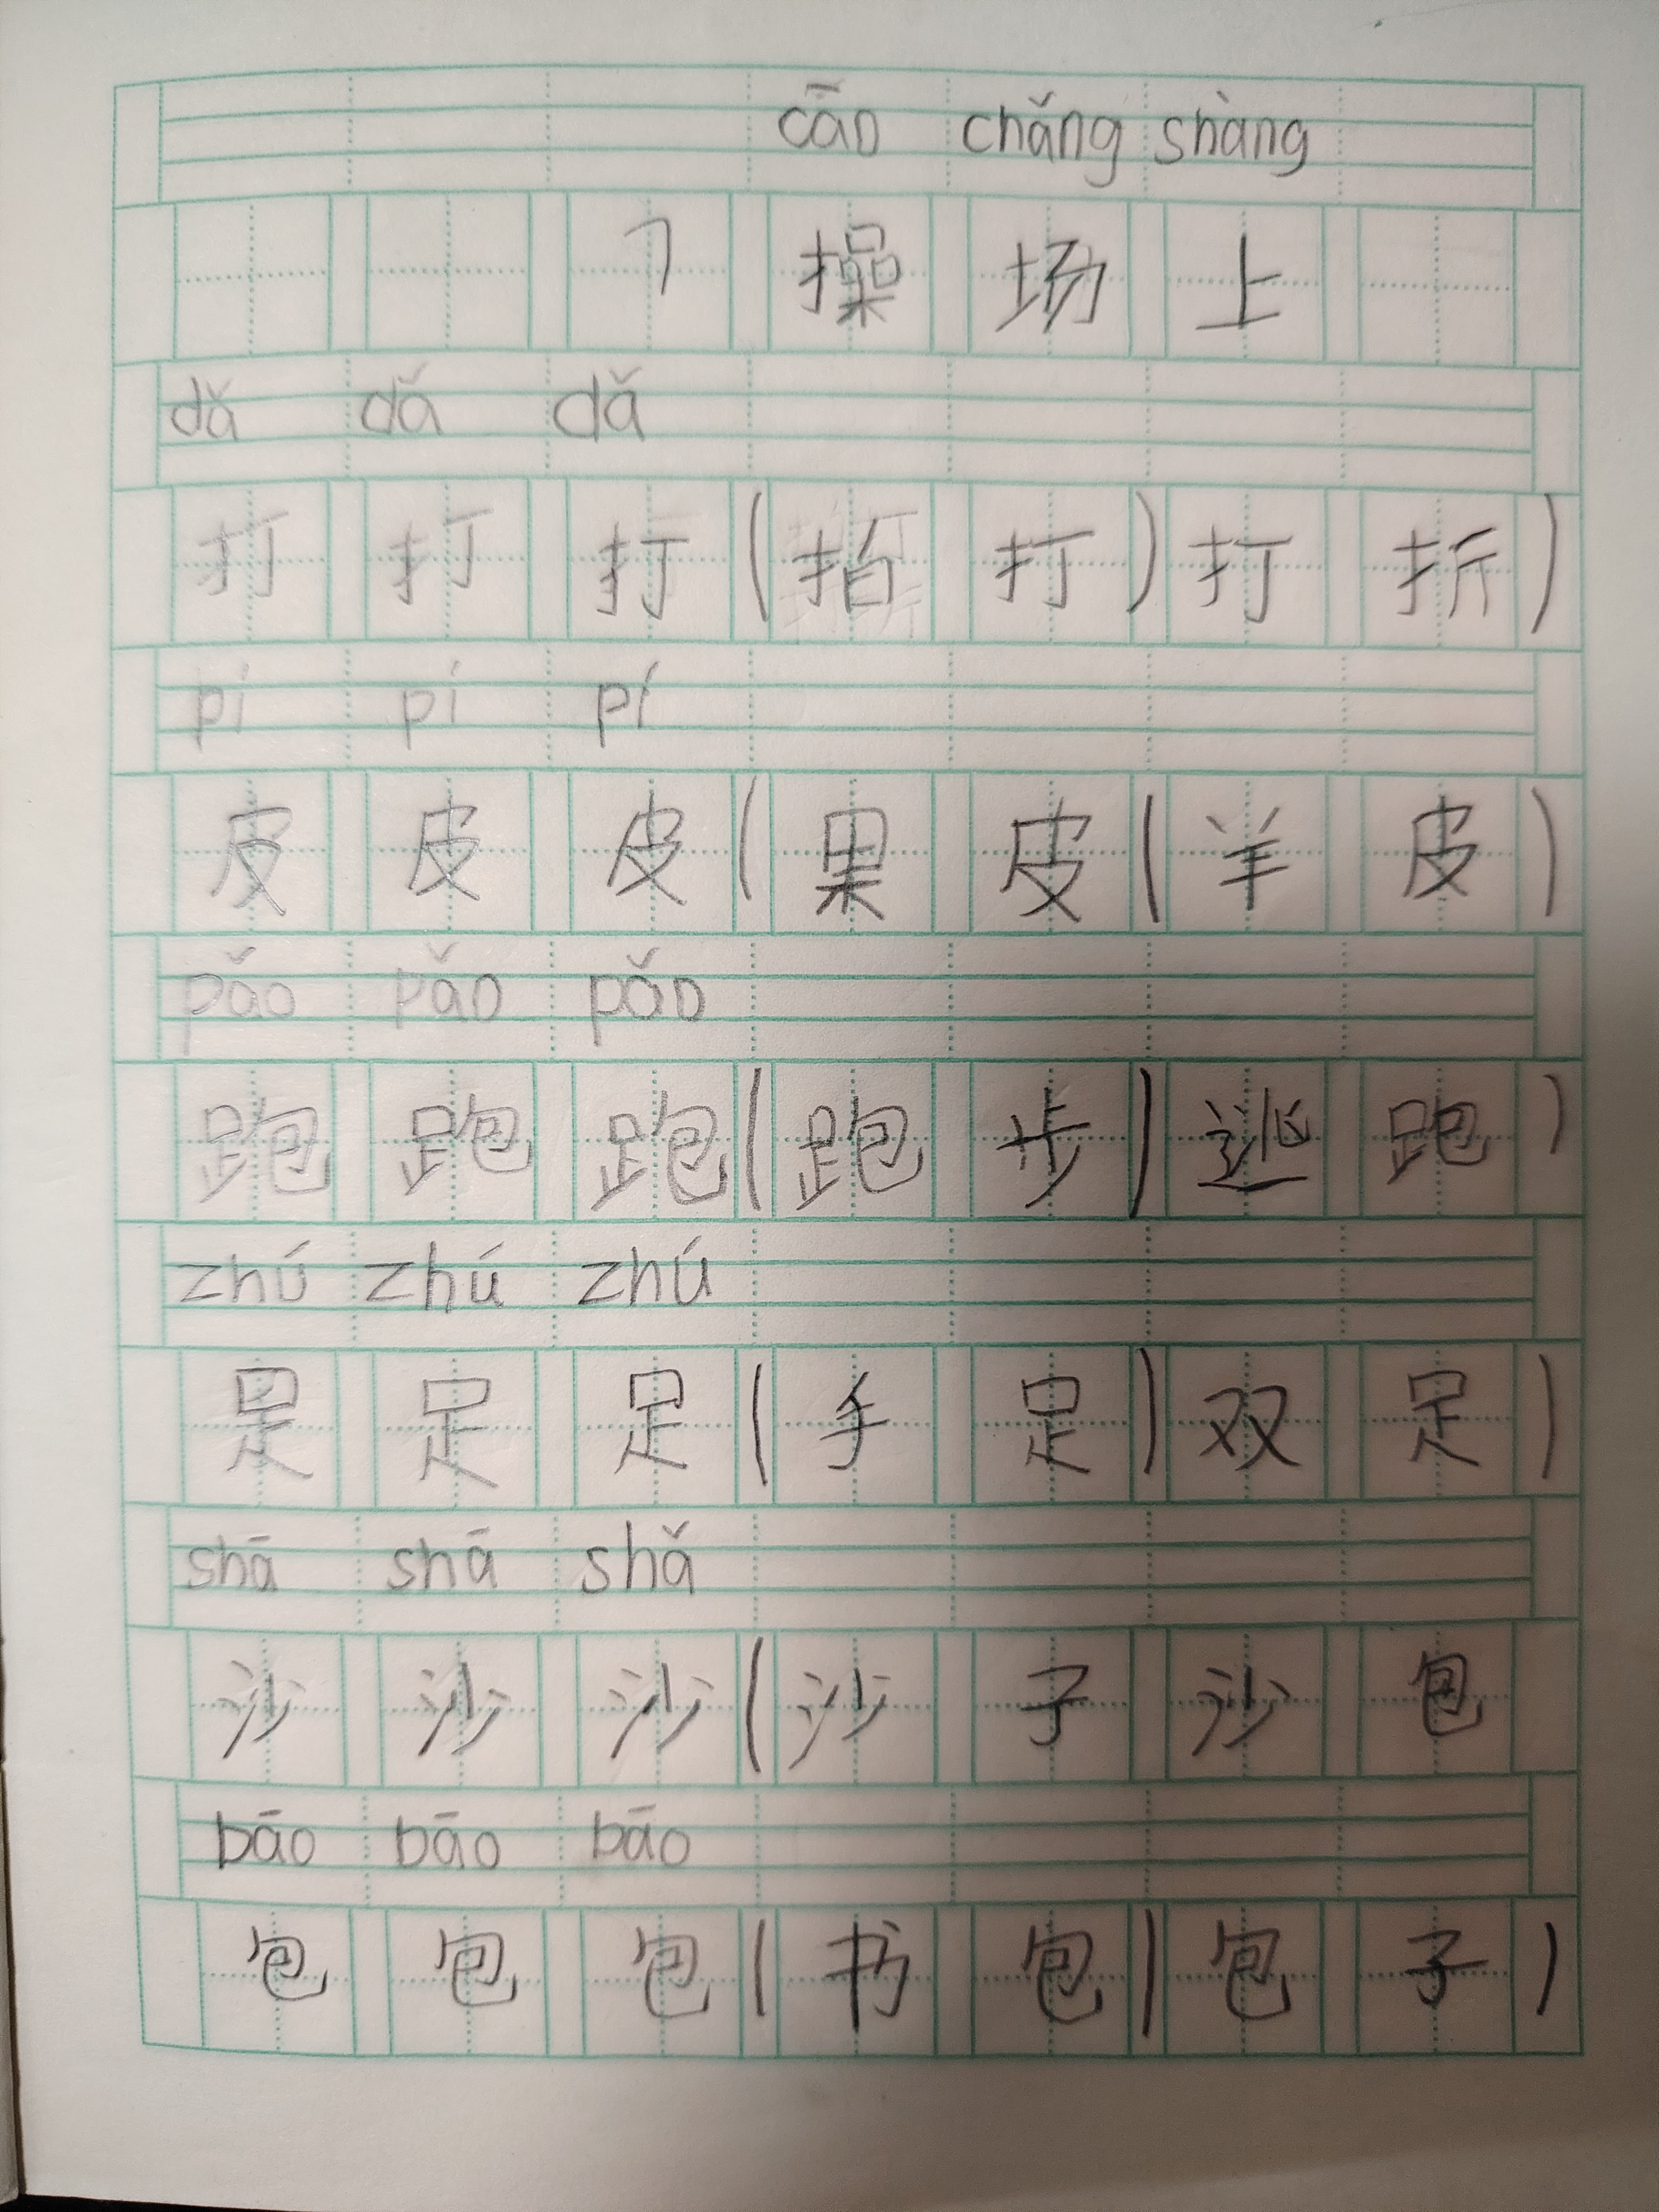 cāo chǎng shàng
7 操场上
dǎ dǎ dǎ
打打打(拍打)打折)
pí pí pí
皮皮皮(果皮(羊皮)
pǎo pǎo pǎo
跑跑跑(跑步)逃跑)
zhú zhú zhú
足足足(手足)双足)
shā shā shǎ
沙沙沙(沙子沙包
bāo bāo bāo
包包包(书包)包子)